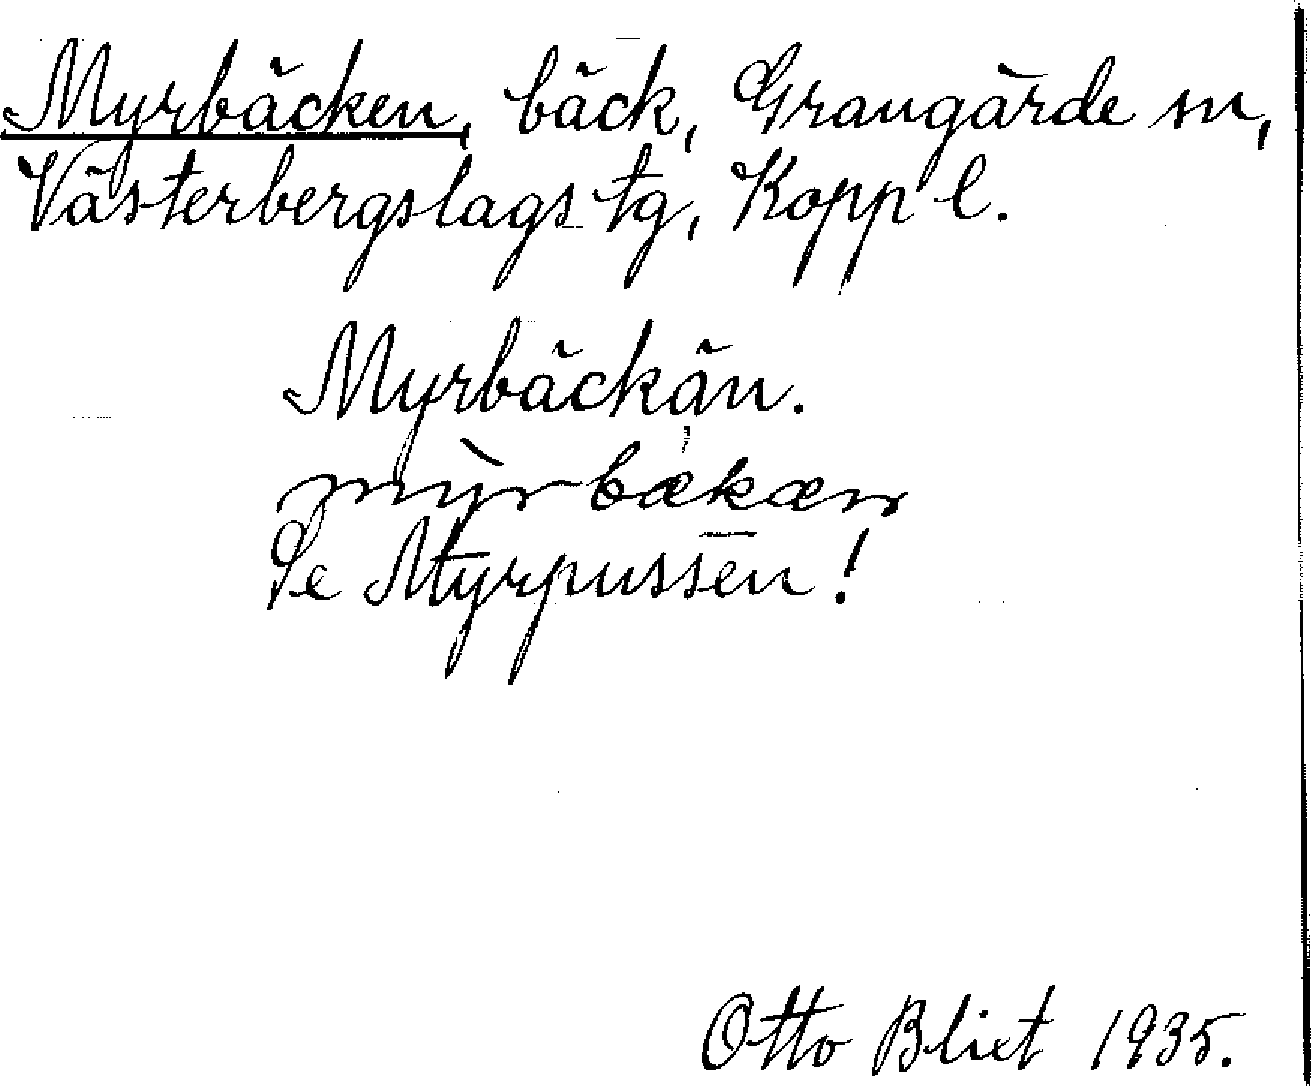 Myrbäcken, bäck, Grangärde sn,
Västerbergslags tg, Kopp l.
Myrbäckän.
mỳrbækæn
Se Myrpussen!
Otto Blixt 1935.